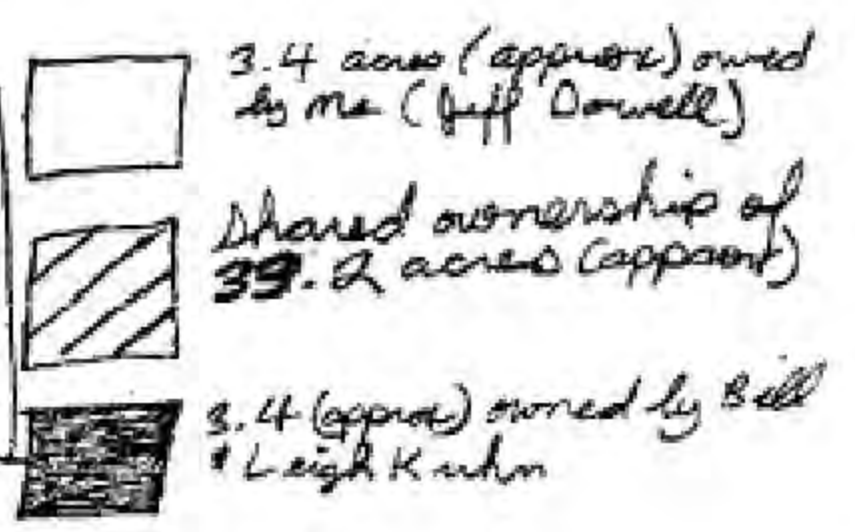 3.4 acres (approx) owned
by me (Jeff Dowell)
Shared ownership of
39.2 acres (approx)
3.4 (approx) owned by Bill
& Leigh Kuhn